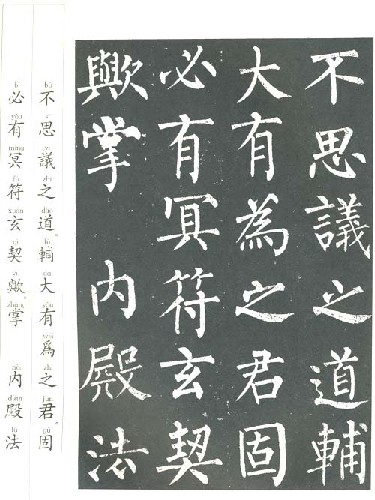 不思議之道輔
大有為之君固
必有冥符玄契
歟掌 內殿法
bù sī yì zhī dào fǔ dà yǒu wéi zhī jūn gù
不思議之道。輔大有為之君。固
bì yǒu míng fú xuán qì yú zhǎng nèi diàn fǎ
必有冥符玄契歟。掌 內殿法